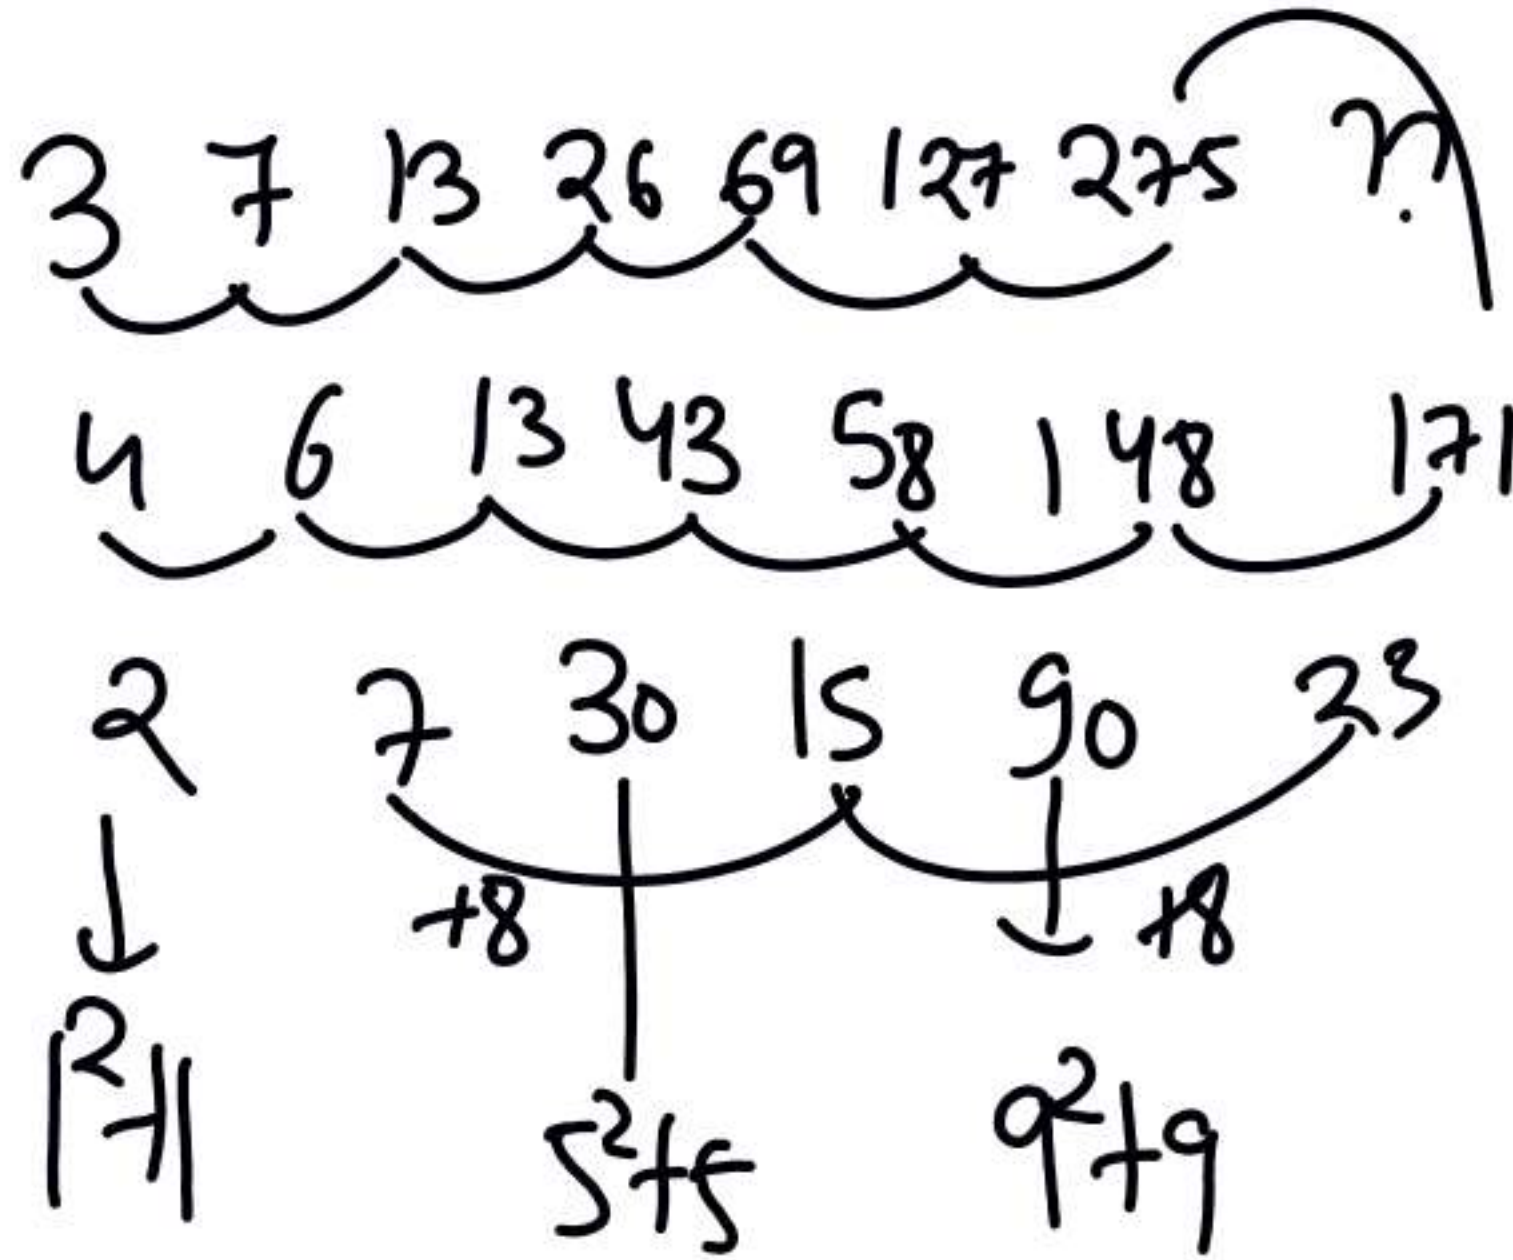 3 7 13 26 69 127 275 ?
4 6 13 43 58 148 171
2 7 30 15 90 23
+8 +8
1²+1 5²+5 9²+9